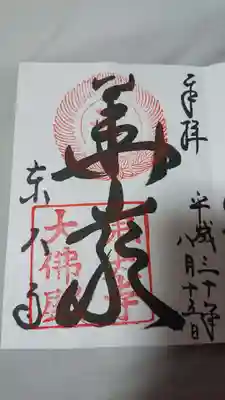 奉拝
平成三十年
八月十五日
華厳
東大寺
東大寺
大佛殿